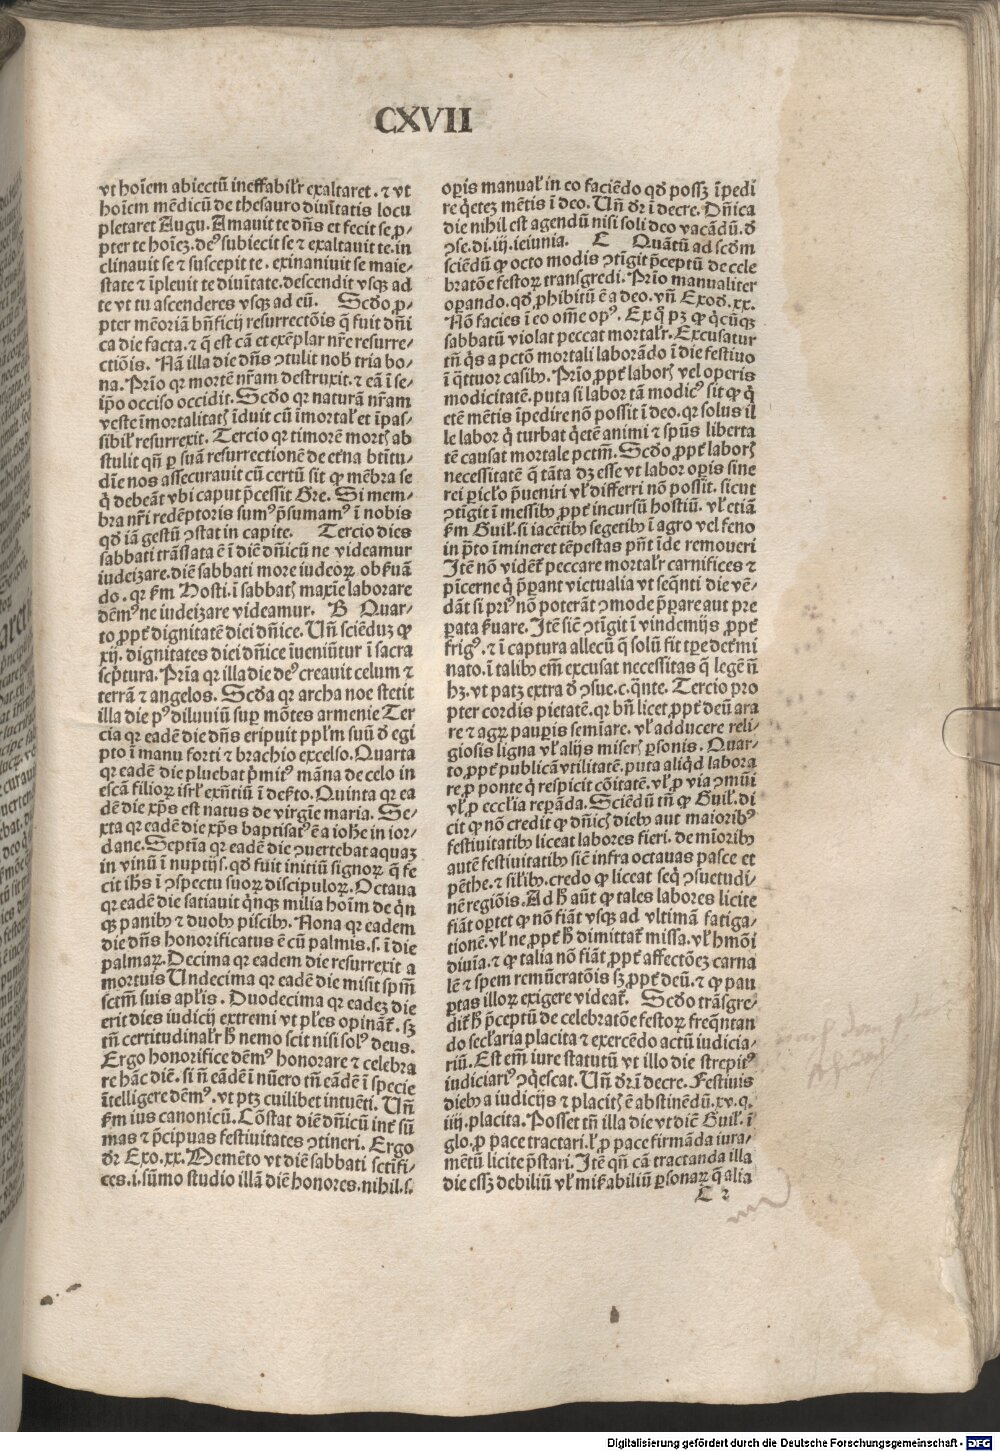 CXVII
vt hoīem abiectū ineffabilr̄ exaltaret. ⁊ vt
hoīem mēdicū de thesauro diuītatis locu
pletaret Augu. Amauit te dn̄s et fecit se ꝓ-
pter te hoīeꝫ. deꝰ subiecit se ⁊ exaltauit te. in
clinauit se ⁊ suscepit te. exinaniuit se maie-
state ⁊ īpleuit te diuītate. descendit vsqꝫ ad
te vt tu ascenderes vsqꝫ ad eū. Scd̄o ꝓ-
pter mēoriā bn̄ficij resurrectōis q̄ fuit dn̄i
ca die facta. ⁊ q̄ est cā et exēplar nr̄e resurre-
ctiōis. Nā illa die dn̄s ꝯtulit nob̄ tria bo-
na. Prīo qꝛ mortē nr̄am destruxit. ⁊ eā ī se-
ip̄o occiso occidit. Scd̄o qꝛ naturā nr̄am
veste īmortalitatꝭ īduit cū īmortal̄ et īpas-
sibil̄ resurrexit. Tercio qꝛ timorē mortꝭ ab
stulit qn̄ ꝑ suā resurrectionē de et̄na btītu-
dīe nos assecurauit cū certū sit ꝙ mēbra se
q̄ debeāt vbi caput p̄cessit Gre. Si mem-
bra nr̄i redēptoris sumꝰ p̄sumamꝰ ī nobis
qd̄ iā gestū ꝯstat in capite. Tercio dies
sabbati trāslata ē ī diē dn̄icū ne videamur
iudeizare. diē sabbati more iudeoꝝ obẜuā
do. qꝛ ẜm Hosti. ī sabbatꝭ maxīe laborare
dēmꝰ ne iudeizare videamur. B Quar-
to ꝓpt̄ dignitatē diei dn̄ice. Vn̄ sciēduꝫ ꝙ
xij. dignitates diei dn̄ice īueniūtur ī sacra
scp̄tura. Prīa qꝛ illa die deꝰ creauit celum ⁊
terrā ⁊ angelos. Scd̄a qꝛ archa noe stetit
illa die pꝰ diluuiū suꝑ mōtes armenie Ter
cia qꝛ eadē die dn̄s eripuit pplm̄ suū d̄ egi
pto ī manu forti ⁊ brachio excelso. Quarta
qꝛ eadē die pluebat p̄mitꝰ māna de celo in
escā filioꝝ isrl̄ exn̄tiū ī deẜto. Quinta qꝛ ea
dē die xp̄s est natus de virgīe maria. Se-
xta qꝛ eadē die xp̄s baptisatꝰ ē a ioh̄e in ior-
dane. Septīa qꝛ eadē die ꝯuertebat aquaꝫ
in vinū ī nuptijs. qd̄ fuit initiū signoꝝ q̄ fe
cit ih̄s ī ꝯspectu suoꝝ discipuloꝝ. Octaua
qꝛ eadē die satiauit qͥnqꝫ milia hoīm de qͥn
qꝫ panibꝰ ⁊ duobꝰ piscibꝰ. Nona qꝛ eadem
die dn̄s honorificatus ē cū palmis. s. ī die
palmaꝝ. Decima qꝛ eadem die resurrexit a
mortuis Undecima qꝛ eadē die misit spm̄
sctm̄ suis apl̄is. Duodecima qꝛ eadeꝫ die
erit dies iudicij extremi vt pl̄es opinant̄. sꝫ
tn̄ certitudinalr̄ h̄ nemo scit nisi solꝰ deus.
Ergo honorifice dēmꝰ honorare ⁊ celebra
re hāc diē. si n̄ eādē ī nūero tn̄ eādē ī specie
ītelligere dēmꝰ. vt ptꝫ cuilibet intuēti. Vn̄
ẜm ius canonicū. Cōstat diē dn̄icū int̄ sū
mas ⁊ p̄cipuas festiuitates ꝯtineri. Ergo
dr̄ Exo. xx. Memēto vt diē sabbati sctīfi-
ces. i. sūmo studio illā diē honores. nihil. s.
oꝑis manual̄ in eo faciēdo qd̄ possꝫ īpedi
re qͥeteꝫ mētis ī deo. Vn̄ dr̄ ī decre. Dn̄ica
die nihil est agendū nisi soli deo vacādū. d̄
ꝯse. di. iij. ieiunia. C Quātū ad scd̄m
sciēdū ꝙ octo modis ꝯtigit p̄ceptū de cele
bratōe festoꝝ transgredi. Prīo manualiter
oꝑando. qd̄ ꝓhibitū ē a deo. vn̄ Exod̄. xx.
Nō facies ī eo om̄e opꝰ. Ex q̄ pꝫ ꝙ qͥcūqꝫ
sabbatū violat peccat mortalr̄. Excusatur
tn̄ qͥs a pctō mortali laborādo ī die festiuo
ī qͣttuor casibꝰ. Prīo ꝓpt̄ laborꝭ vel operis
modicitatē. puta si labor tā modicꝰ sit ꝙ qͥ
etē mētis īpedire nō possit ī deo. qꝛ solus il
le labor qͥ turbat qͥetē animi ⁊ spūs liberta
tē causat mortale pctm̄. Scd̄o ꝓpt̄ laborꝭ
necessitatē q̄ tāta dꝫ esse vt labor oꝑis sine
rei ꝑicl̄o p̄ueniri vl̄ differri nō possit. sicut
ꝯtigit ī messibꝰ ꝓpt̄ incursū hostiū. vl̄ etiā
ẜm Guil̄. si iacētibꝰ segetibꝰ ī agro vel feno
in p̄to īmineret tēpestas pn̄t īde remoueri
Itē nō vident̄ peccare mortalr̄ carnifices ⁊
pīcerne qͥ p̄parant victualia vt seqn̄ti die vē-
dāt si priꝰ nō poterāt ꝯmode p̄parare aut pre
parata ẜuare. Itē sic̄ ꝯtigit ī vindemijs ꝓpt̄
frigꝰ. ⁊ ī captura allecū q̄ solū fit tꝑe det̄mi
nato. ī talibꝰ em̄ excusat necessitas q̄ legē n̄
hꝫ. vt patꝫ extra d̄ ꝯsue. c. qͣnte. Tercio pro
pter cordis pietatē. qꝛ bn̄ licet ꝓpt̄ deū ara
re ⁊ agꝝ pauꝑis semīare. vl̄ adducere reli-
giosis ligna vl̄ alijs miserꝭ ꝑsonis. Quar-
to ꝓpt̄ publicā vtilitatē. puta aliqͥd labora
re ꝓ ponte q̄ respicit cōitatē. vl̄ ꝓ via ꝯmūi
vl̄ ꝓ eccl̄ia reparāda. Sciēdū tn̄ ꝙ Guil̄. di
cit ꝙ nō credit ꝙ dn̄icꝭ diebꝰ aut maioribꝰ
festiuitatibꝰ liceat labores fieri. de mīoribꝰ
autē festiuitatibꝰ sic̄ infra octauas pasce et
pēthe. ⁊ sil̄ibꝰ. credo ꝙ liceat seqͥ ꝯsuetudi-
nē regiōis. Ad h̄ aūt ꝙ tales labores licite
fiāt oꝑtet ꝙ nō fiāt vsqꝫ ad vltimā fatiga-
tionē. vl̄ ne ꝓpt̄ h̄ dimittat̄ missa. vl̄ hmōi
diuīa. ⁊ ꝙ talia nō fiāt ꝓpt̄ affectōeꝫ carna
lē ⁊ spem remūeratōis sꝫ ꝓpt̄ deū. ⁊ ꝙ pau
ꝑtas illoꝝ exigere videat̄. Scd̄o trāsgre-
dit̄ h̄ p̄ceptū de celebratōe festoꝝ freqn̄tan
do secl̄aria placita ⁊ exercēdo actū iudicia-
riū. Est em̄ iure statutū vt illo die strepitꝰ
iudiciariꝰ ꝯqͥescat. Vn̄ dr̄ ī decre. Festiuis
diebꝰ a iudicijs ⁊ placitꝭ ē abstinēdū. xv. q.
iiij. placita. Posset tn̄ illa die vt diē Guil̄. ī
glo. ꝓ pace tractari. l̄ ꝓ pace firmāda iura-
mētū licite p̄stari. Itē qn̄ cā tractanda illa
die essꝫ debiliū vl̄ miẜabiliū ꝑsonaꝝ q̄ alia
C 2
Digitalisierung gefördert durch die Deutsche Forschungsgemeinschaft - DFG